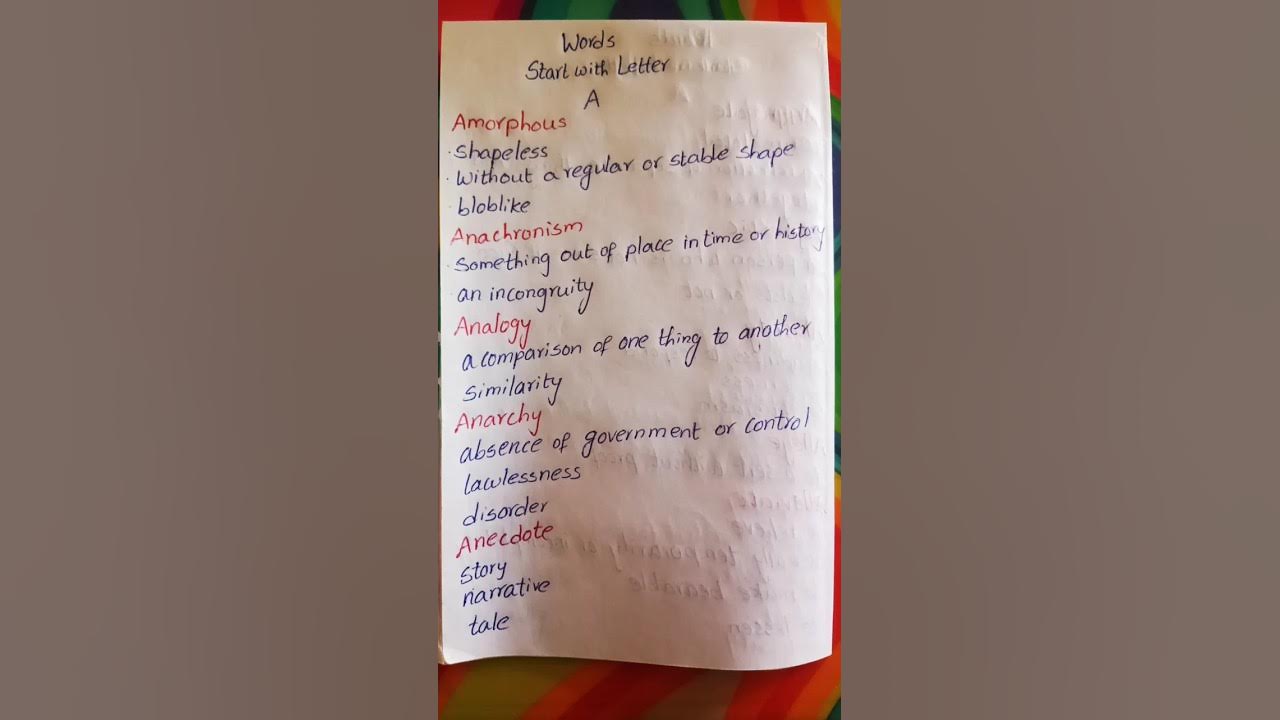 Words
Start with Letter
A
Amorphous
· Shapeless
· Without a regular or stable shape
· bloblike
Anachronism
· Something out of place in time or history
· an incongruity
Analogy
a comparison of one thing to another
similarity
Anarchy
absence of government or control
lawlessness
disorder
Anecdote
story
narrative
tale